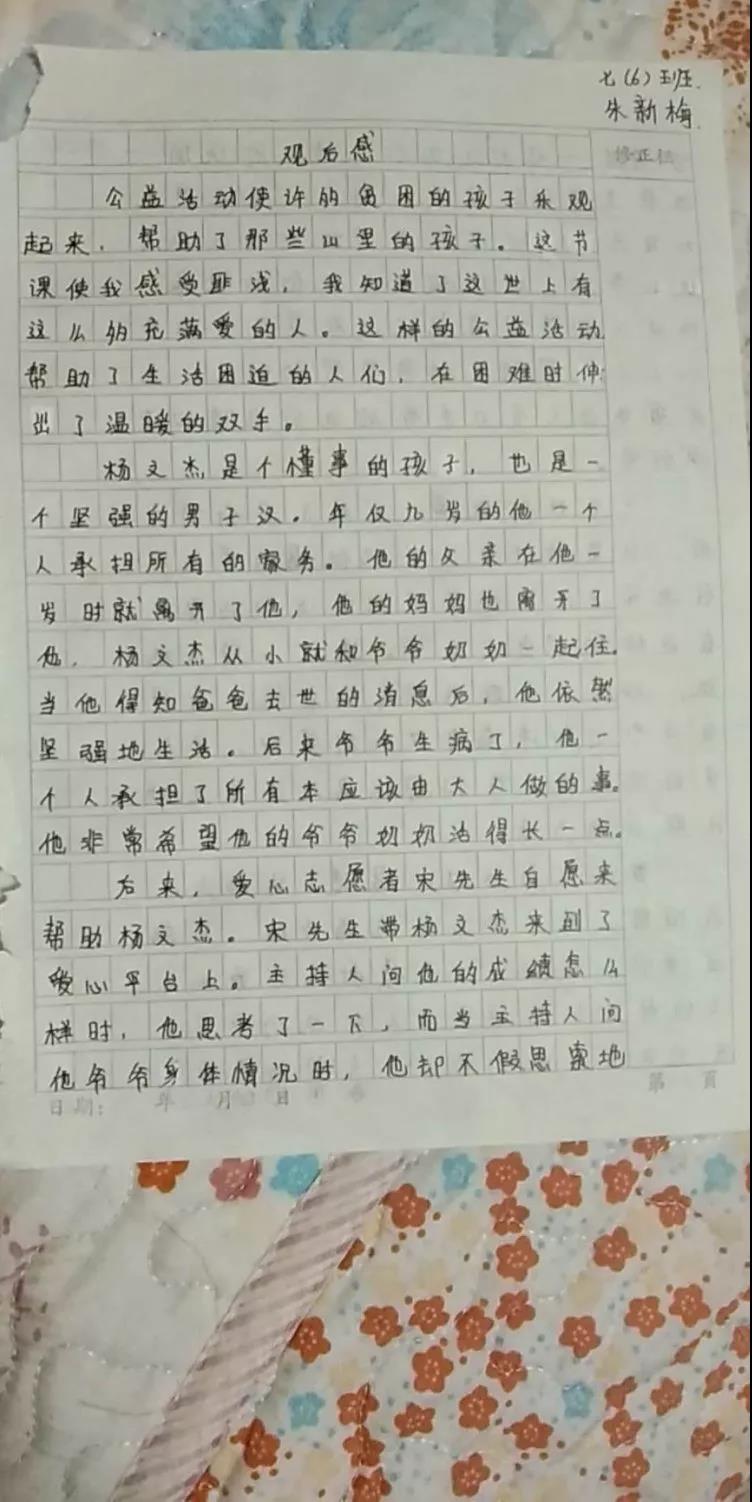 七(6)班.
朱新梅.
观后感
修正栏
公益活动使许多贫困的孩子乐观
起来,帮助了那些山里的孩子。这节
课使我感受匪浅,我知道了这世上有
这么多充满爱的人。这样的公益活动
帮助了生活困迫的人们,在困难时伸
出了温暖的双手。
杨文杰是个懂事的孩子,也是一
个坚强的男子汉。年仅九岁的他一个
人承担所有的家务。他的父亲在他一
岁时就离开了他,他的妈妈也离开了
他,杨文杰从小就和爷爷奶奶一起住。
当他得知爸爸去世的消息后,他依然
坚强地生活。后来爷爷生病了,他一
个人承担了所有本应该由大人做的事。
他非常希望他的爷爷奶奶活得长一点。
后来,爱心志愿者宋先生自愿来
帮助杨文杰。宋先生带杨文杰来到了
爱心平台上。主持人问他的成绩怎么
样时,他思考了一下,而当主持人问
他爷爷身体情况时,他却不假思索地
日期: 年 月 日
第 页